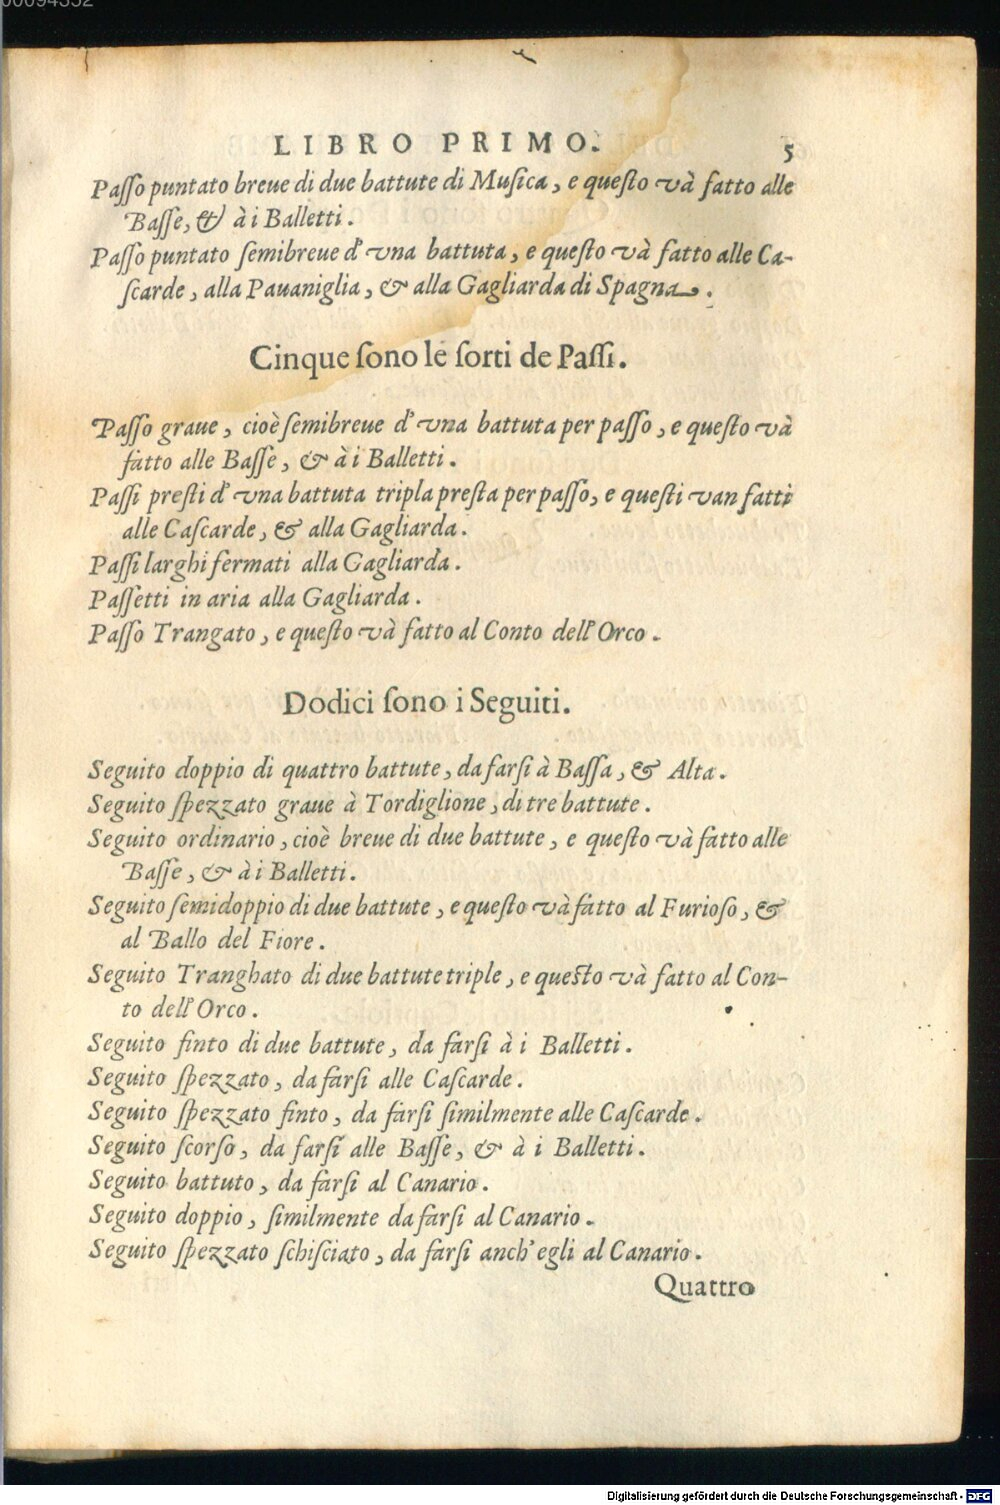 00094352
LIBRO PRIMO. 5
Paſſo puntato breue di due battute di Muſica, e queſto và fatto alle
Baſſe, & à i Balletti.
Paſſo puntato ſemibreue d'vna battuta, e queſto và fatto alle Ca-
ſcarde, alla Pauaniglia, & alla Gagliarda di Spagna.
Cinque ſono le ſorti de Paſſi.
Paſſo graue, cioè ſemibreue d'vna battuta per paſſo, e queſto và
fatto alle Baſſe, & à i Balletti.
Paſſi preſti d'vna battuta tripla preſta per paſſo, e queſti van fatti
alle Caſcarde, & alla Gagliarda.
Paſſi larghi fermati alla Gagliarda.
Paſſetti in aria alla Gagliarda.
Paſſo Trangato, e queſto và fatto al Conto dell'Orco.
Dodici ſono i Seguiti.
Seguito doppio di quattro battute, da farſi à Baſſa, & Alta.
Seguito ſpezzato graue à Tordiglione, di tre battute.
Seguito ordinario, cioè breue di due battute, e queſto và fatto alle
Baſſe, & à i Balletti.
Seguito ſemidoppio di due battute, e queſto và fatto al Furioſo, &
al Ballo del Fiore.
Seguito Tranghato di due battute triple, e queſto và fatto al Con-
to dell'Orco.
Seguito finto di due battute, da farſi à i Balletti.
Seguito ſpezzato, da farſi alle Caſcarde.
Seguito ſpezzato finto, da farſi ſimilmente alle Caſcarde.
Seguito ſcorſo, da farſi alle Baſſe, & à i Balletti.
Seguito battuto, da farſi al Canario.
Seguito doppio, ſimilmente da farſi al Canario.
Seguito ſpezzato ſchiſciato, da farſi anch'egli al Canario.
Quattro
Digitalisierung gefördert durch die Deutsche Forschungsgemeinschaft - DFG